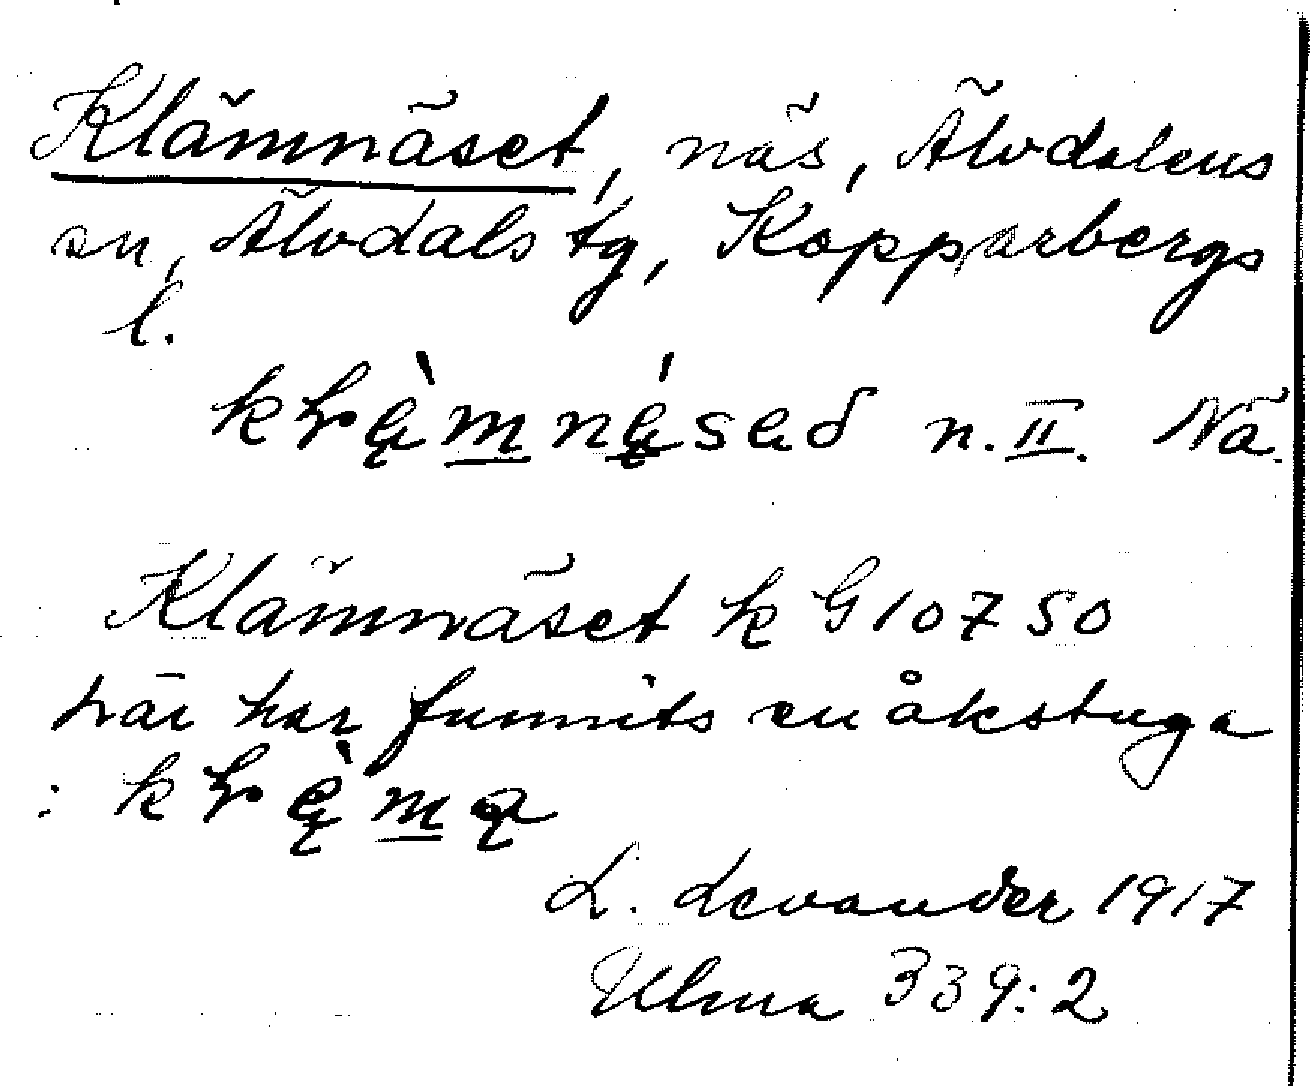 Klämnäset, näs, Älvdalens
sn, Älvdals tg, Kopparbergs
l.
n. II. Nä.
Klämnäset k G 10750
här har funnits en åkstuga
:
L. Levander 1917
Ulma 339:2